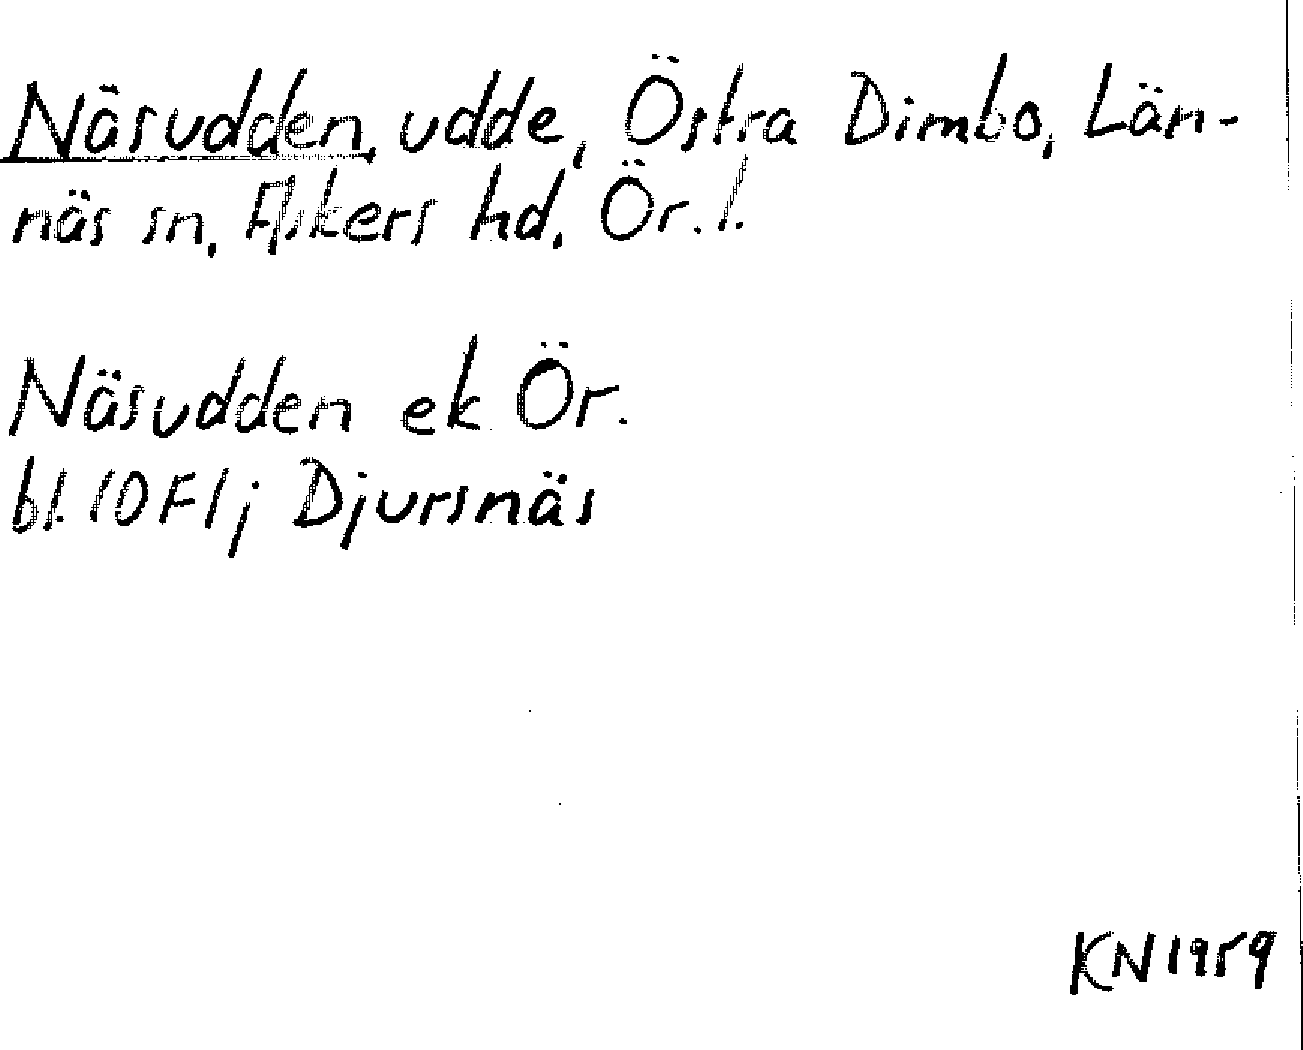 Näsudden, udde, Östra Dimbo, Län-
näs sn, Askers hd, Ör. l.
Näsudden ek Ör.
bl. 10F1j Djursnäs
KN 1959